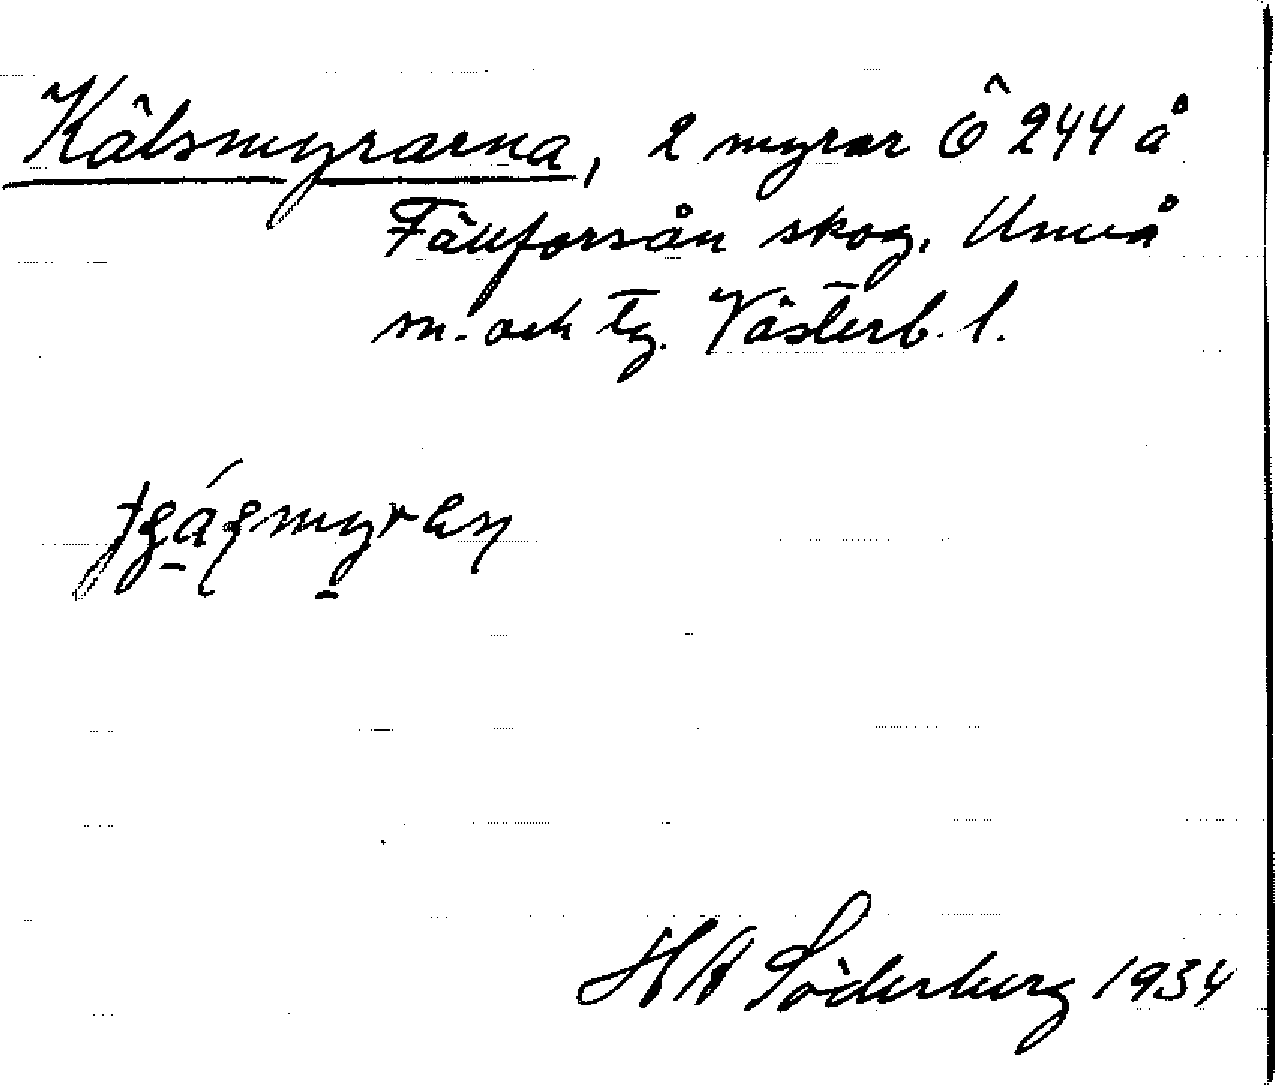 Kälsmyrarna, 2 myrar Ö 244 å
Fällforsån skog. Umeå
m. och tg. Västerb. l.
H A Söderberg 1934